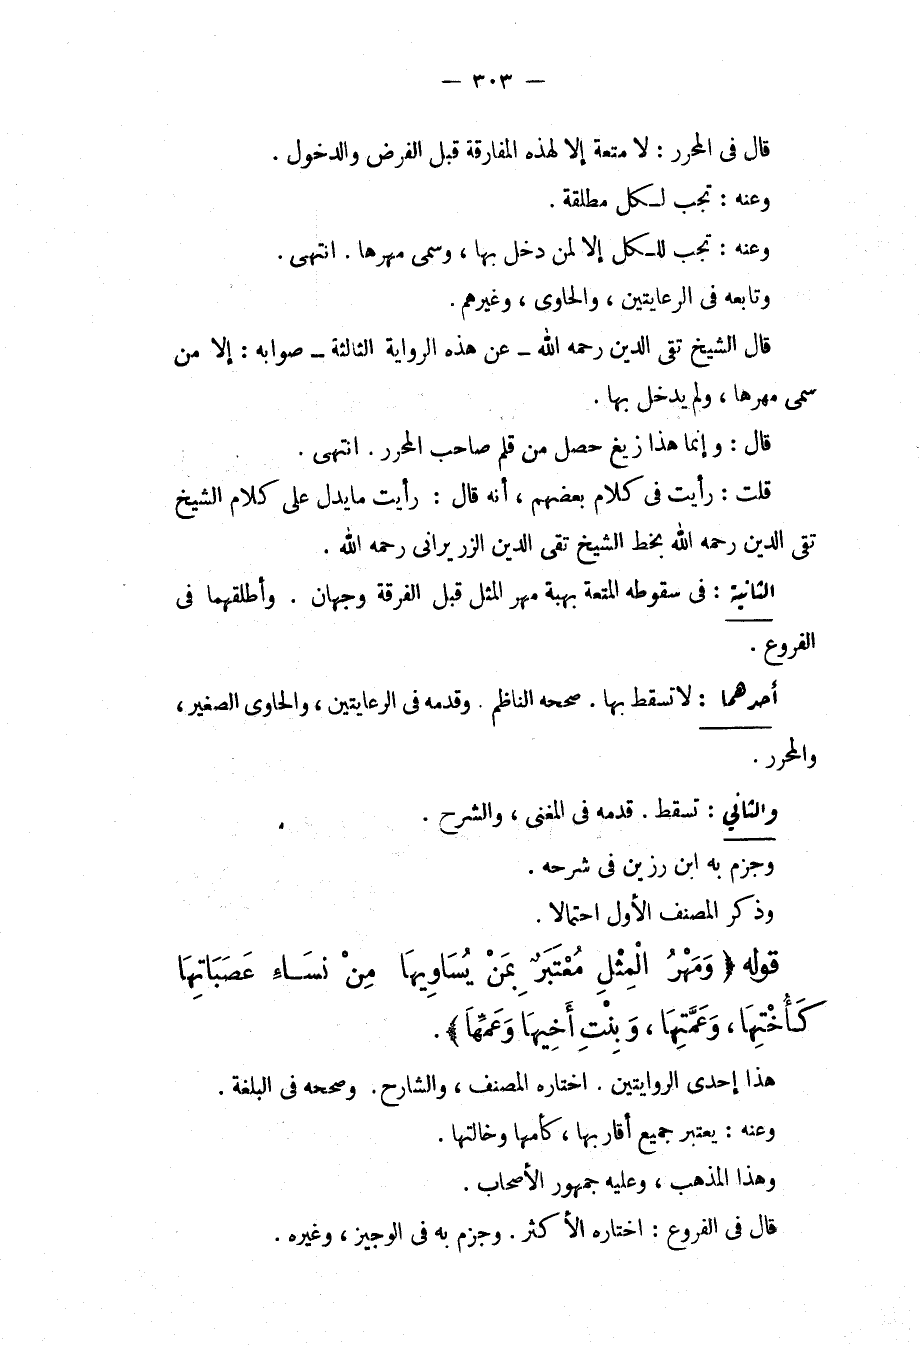 — ٣٠٣ —
قال فى المحرر : لا متعة إلا لهذه المفارقة قبل الفرض والدخول .
وعنه : تجب لكل مطلقة .
وعنه : تجب للكل إلا لمن دخل بها ، وسمى مهرها . انتهى .
وتابعه فى الرعايتين ، والحاوى ، وغيرهم .
قال الشيخ تقى الدين رحمه الله – عن هذه الرواية الثالثة – صوابه : إلا من
سمى مهرها ، ولم يدخل بها .
قال : وإنما هذا زيغ حصل من قلم صاحب المحرر . انتهى .
قلت : رأيت فى كلام بعضهم ، أنه قال : رأيت مايدل على كلام الشيخ
تقى الدين رحمه الله بخط الشيخ تقى الدين الزريرانى رحمه الله .
الثانية : فى سقوطه المتعة بهبة مهر المثل قبل الفرقة وجهان . وأطلقهما فى
الفروع .
أحدهما : لاتسقط بها . صححه الناظم . وقدمه فى الرعايتين ، والحاوى الصغير ،
والمحرر .
والثاني : تسقط . قدمه فى المغنى ، والشرح .
وجزم به ابن رزين فى شرحه .
وذكر المصنف الأول احتمالا .
قوله ﴿ وَمَهْرُ الْمِثْلِ مُعْتَبَرٌ بِمَنْ يُسَاوِيهَا مِنْ نسَاءِ عَصَبَاتِهَا
كَأُخْتِهَا ، وَعَمَّتِهَا ، وَبِنْتِ أَخِيهَا وَعَمِّهَا ﴾ .
هذا إحدى الروايتين . اختاره المصنف ، والشارح . وصححه فى البلغة .
وعنه : يعتبر جميع أقاربها ، كأمها وخالتها .
وهذا المذهب ، وعليه جمهور الأصحاب .
قال فى الفروع : اختاره الأكثر . وجزم به فى الوجيز ، وغيره .